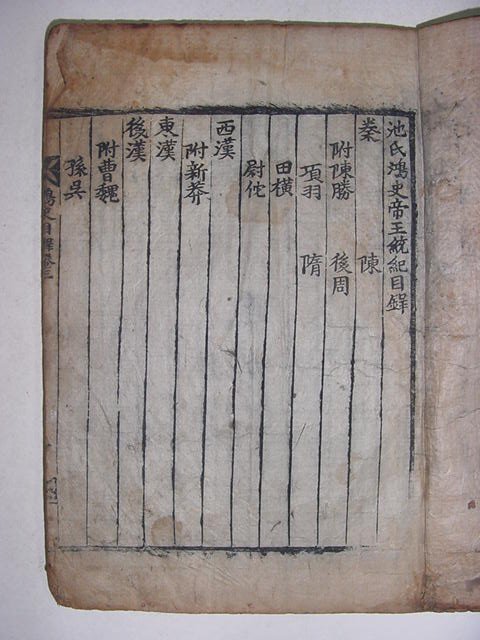 池氏鴻史帝王統紀目錄
秦 陳
附陳勝 後周
項羽 隋
田橫
尉佗
西漢
附新莽
東漢
後漢
附曹魏
孫吳
鴻史目錄卷三